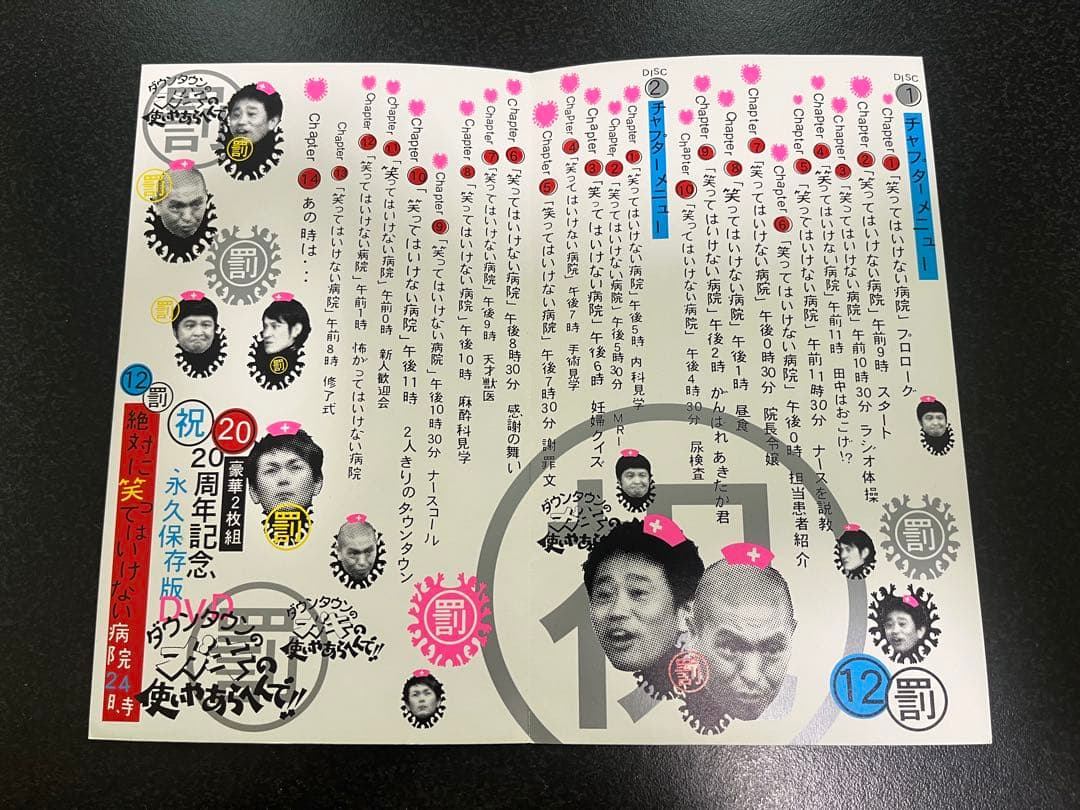 DISC
1
チャプターメニュー
Chapter 1 「笑ってはいけない病院」プロローグ
Chapter 2 「笑ってはいけない病院」午前9時 スタート
Chapter 3 「笑ってはいけない病院」午前10時30分 ラジオ体操
Chapter 4 「笑ってはいけない病院」午前11時 田中はおこげ!?
Chapter 5 「笑ってはいけない病院」午前11時30分 ナースを説教
Chapter 6 「笑ってはいけない病院」午後0時 担当患者紹介
Chapter 7 「笑ってはいけない病院」午後0時30分 院長令嬢
Chapter 8 「笑ってはいけない病院」午後1時 昼食
Chapter 9 「笑ってはいけない病院」午後2時 がんばれ あきたか君
Chapter 10 「笑ってはいけない病院」午後4時30分 尿検査
DISC
2
チャプターメニュー
Chapter 1 「笑ってはいけない病院」午後5時 内科見学
Chapter 2 「笑ってはいけない病院」午後5時30分 MRI
Chapter 3 「笑ってはいけない病院」午後6時 妊婦クイズ
Chapter 4 「笑ってはいけない病院」午後7時 手術見学
Chapter 5 「笑ってはいけない病院」午後7時30分 謝罪文
Chapter 6 「笑ってはいけない病院」午後8時30分 感謝の舞い
Chapter 7 「笑ってはいけない病院」午後9時 天才獣医
Chapter 8 「笑ってはいけない病院」午後10時 麻酔科見学
Chapter 9 「笑ってはいけない病院」午後10時30分 ナースコール
Chapter 10 「笑ってはいけない病院」午後11時 2人きりのダウンタウン
Chapter 11 「笑ってはいけない病院」午前0時 新人歓迎会
Chapter 12 「笑ってはいけない病院」午前1時 怖がってはいけない病院
Chapter 13 「笑ってはいけない病院」午前8時 修了式
Chapter 14 あの時は・・・
祝
罰
12
罰
罰
罰
ダウンタウンの
ガキの
使いやあらへんで!!
罰
ダウンタウンの
ガキの
使いやあらへんで!!
罰
ダウンタウンの
ガキの
使いやあらへんで!!
罰
罰
罰
罰
罰
罰
罰
20
豪華2枚組
祝
20周年記念、
永久保存版
DVD
12
罰
絶対に笑ってはいけない病院24時
ダウンタウンの
ガキの
使いやあらへんで!!
罰